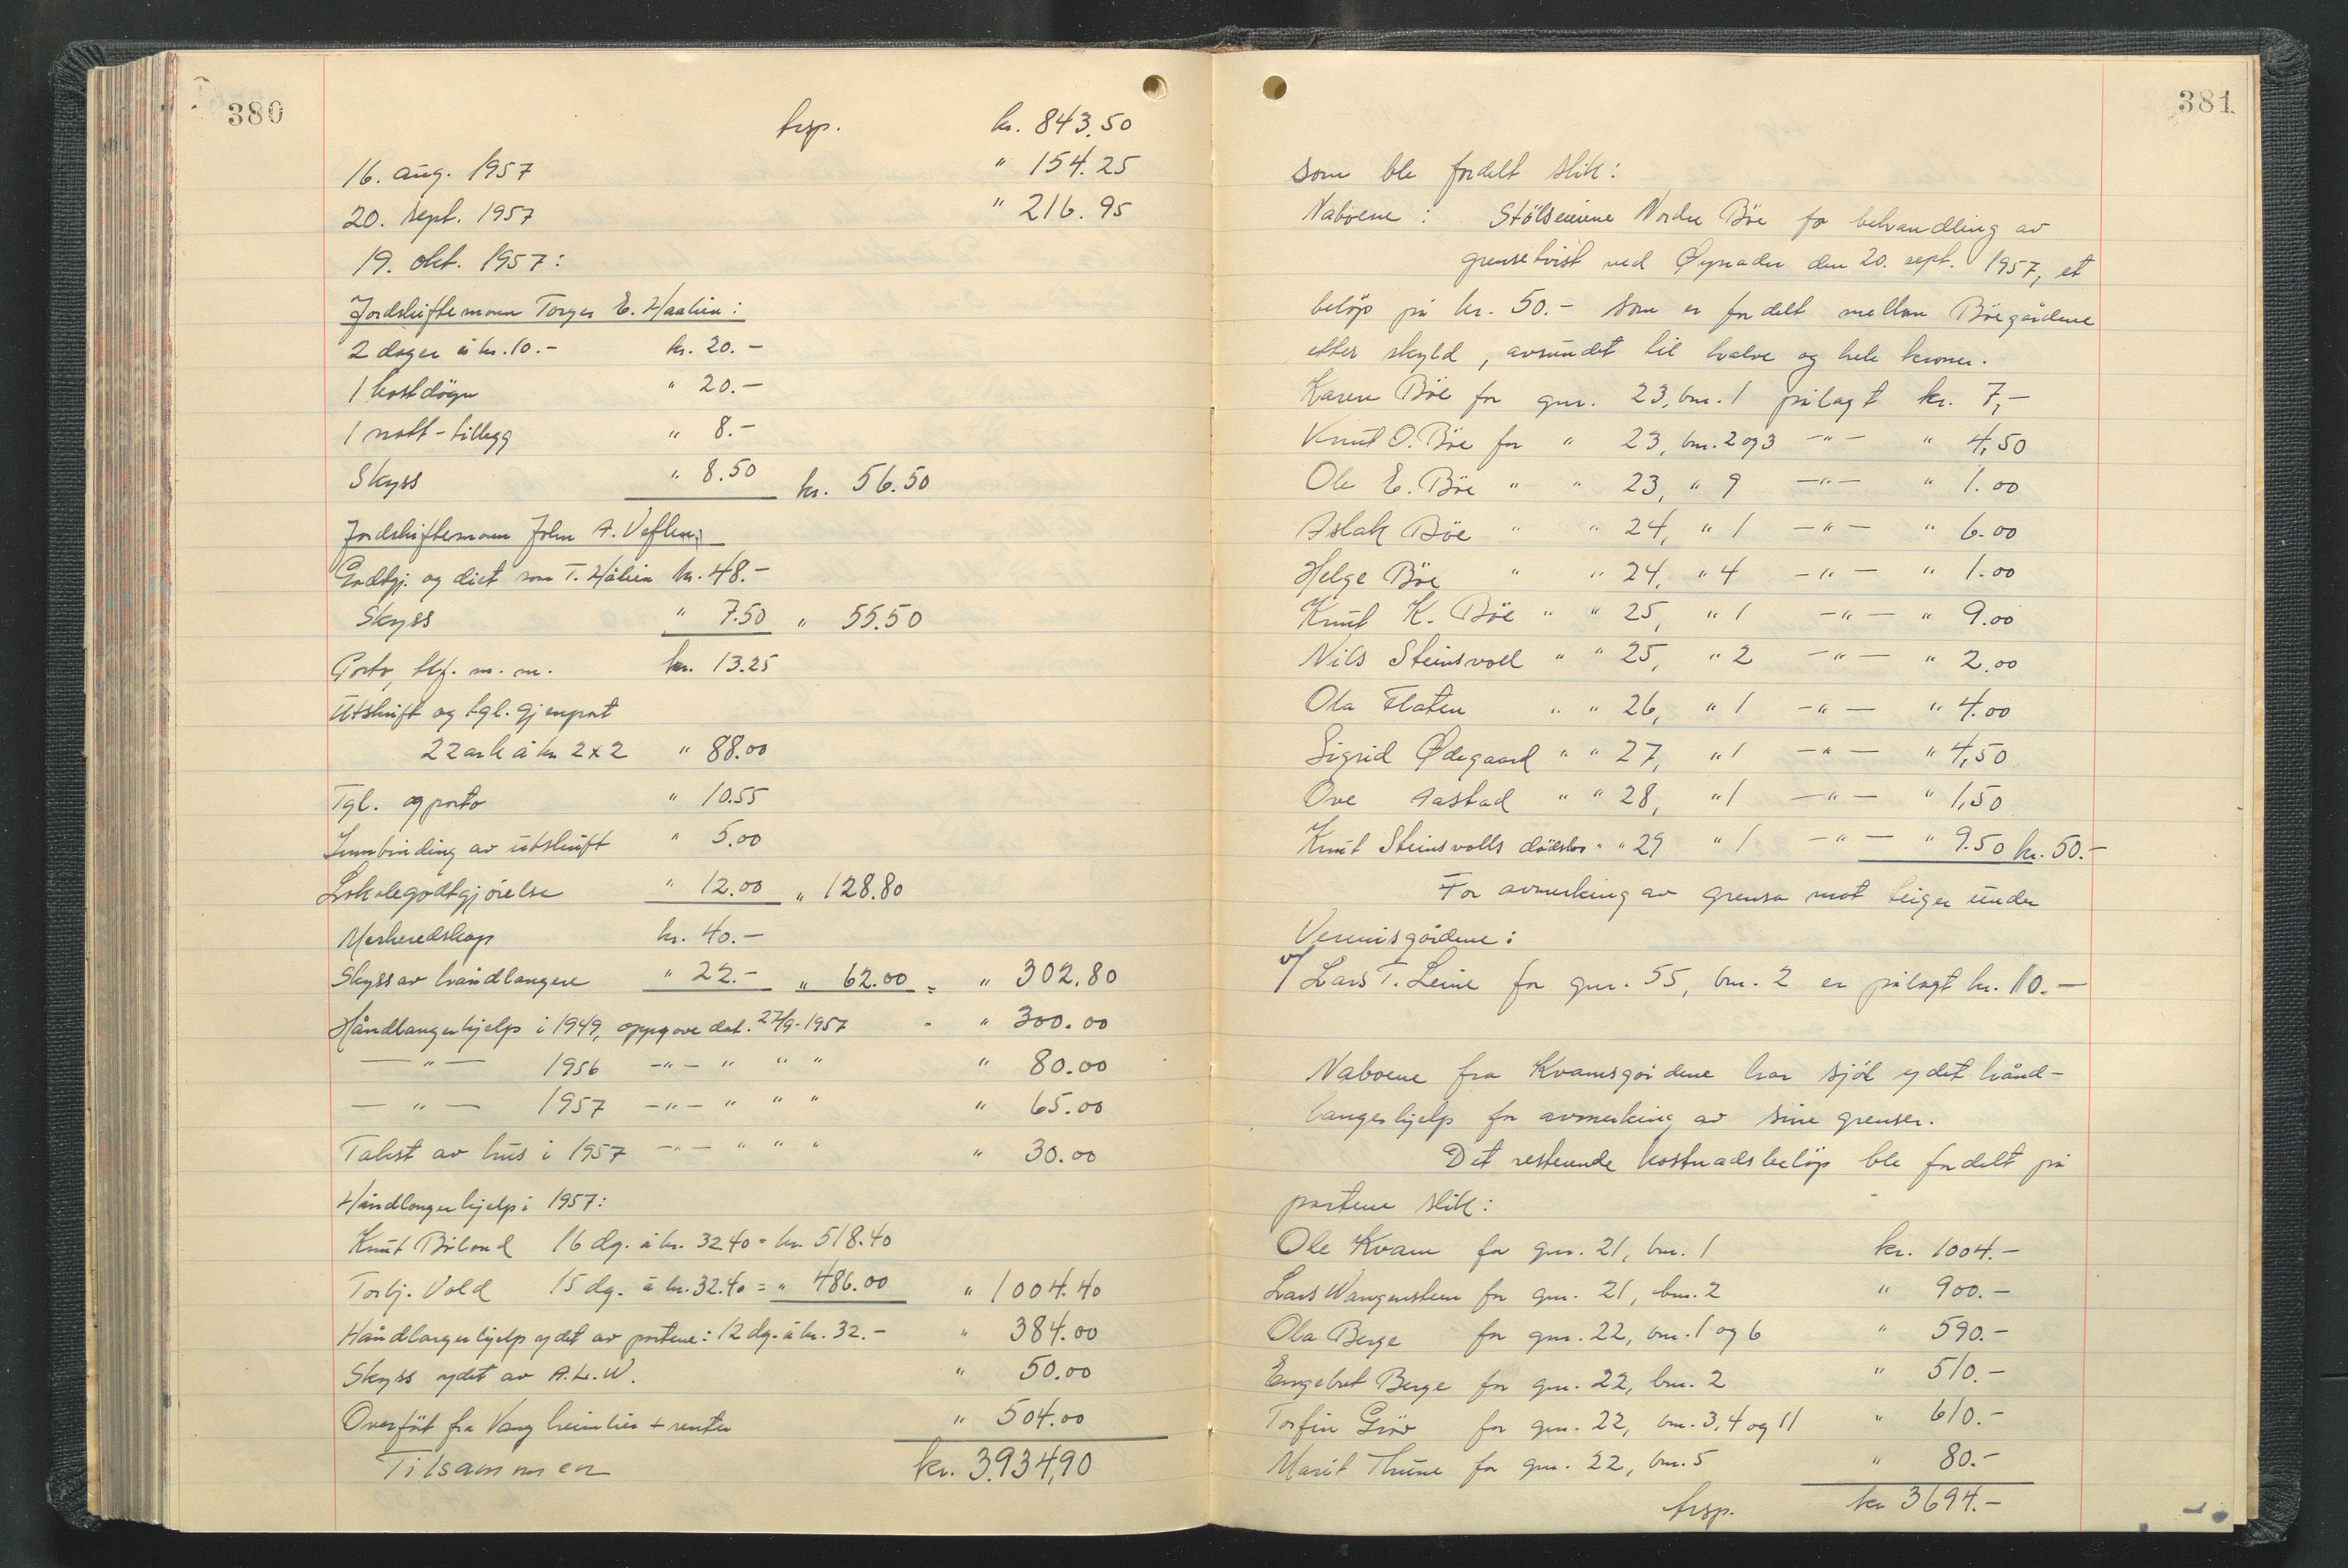 380
trsp. kr. 843.50
16. aug. 1957 " 154.25
20. sept. 1957 " 216.95
19. okt. 1957:
Jordskiftemann Torger E. Haalien:
2 dager à kr. 10.- kr. 20.-
1 kostdøgn " 20.-
1 natt-tillegg " 8.-
Skyss " 8.50 kr. 56.50
Jordskiftemann John A. Veflen:
Godtgj. og diet som T. Hålien kr. 48.-
Skyss " 7.50 " 55.50
Porto, tlf. m. m. kr. 13.25
Utskrift og tgl. gjenpart
22 ark à kr 2x2 " 88.00
Tgl. og porto " 10.55
Innbinding av utskrift " 5.00
Lokalegodtgjörelse " 12.00 " 128.80
Merkeredskap kr. 40.-
Skyss av håndlangere " 22.- " 62.00 = " 302.80
Håndlangerhjelp i 1949, oppgave dat. 27/9-1957 - " 300.00
— " — 1956 -"- " " " " 80.00
— " — 1957 -"- " " " " 65.00
Takst av hus i 1957 -"- " " " " 30.00
Håndlangerhjelp i 1957:
Knut Böland 16 dg. à kr. 32.40 = kr. 518.40
Torbj. Vold 15 dg. à kr. 32.40 = " 486.00 " 1004.40
Håndlangerhjelp ydet av partene: 12 dg. à kr. 32.- " 384.00
Skyss ydet av A.L.W. " 50.00
Overfört fra Vang heimlier + renter " 504.00
Tilsammen kr. 3.934,90
381
som ble fordelt slik:
Naboene: Stölseierne Nordre Böe for behandling av
grensetvist ved Øynadn den 20. sept. 1957, et
belöp på kr. 50.- som er fordelt mellom Böegårdene
etter skyld, avrundet til halve og hele kroner.
Karen Böe for gnr. 23, bnr. 1 pålagt kr. 7,-
Knut O. Böe for " 23, bnr. 2 og 3 -"- " 4,50
Ole E. Böe " " 23, " 9 -"- " 1.00
Aslak Böe " " 24, " 1 -"- " 6.00
Helge Böe " " 24, " 4 -"- " 1.00
Knut K. Böe " " 25, " 1 -"- " 9.00
Nils Steinsvoll " " 25, " 2 -"- " 2.00
Ola Flaten " " 26, " 1 -"- " 4.00
Sigrid Ødegaard " " 27, " 1 -"- " 4,50
Ove Aastad " " 28, " 1 -"- " 1,50
Knut Steinsvolls dödsbo " " 29 " 1 -"- " 9.50 kr. 50.-
For avmerking av grensa mot teiger under
Vennisgårdene:
v/ Lars T. Leine for gnr. 55, bnr. 2 er pålagt kr. 110.-
Naboene fra Kvamsgårdene har sjöl ydet hånd-
langerhjelp for avmerking av sine grenser.
Det resterende kostnadsbelöp ble fordelt på
partene slik:
Ole Kvam for gnr. 21, bnr. 1 kr. 1004.-
Lars Wangensteen for gnr. 21, bnr. 2 " 900.-
Ola Berge for gnr. 22, bnr. 1 og 6 " 590.-
Engebret Berge for gnr. 22, bnr. 2 " 510.-
Torfin Gröv for gnr. 22, bnr. 3, 4 og 11 " 610.-
Marit Thune for gnr. 22, bnr. 5 " 80.-
trsp. kr 3694.-